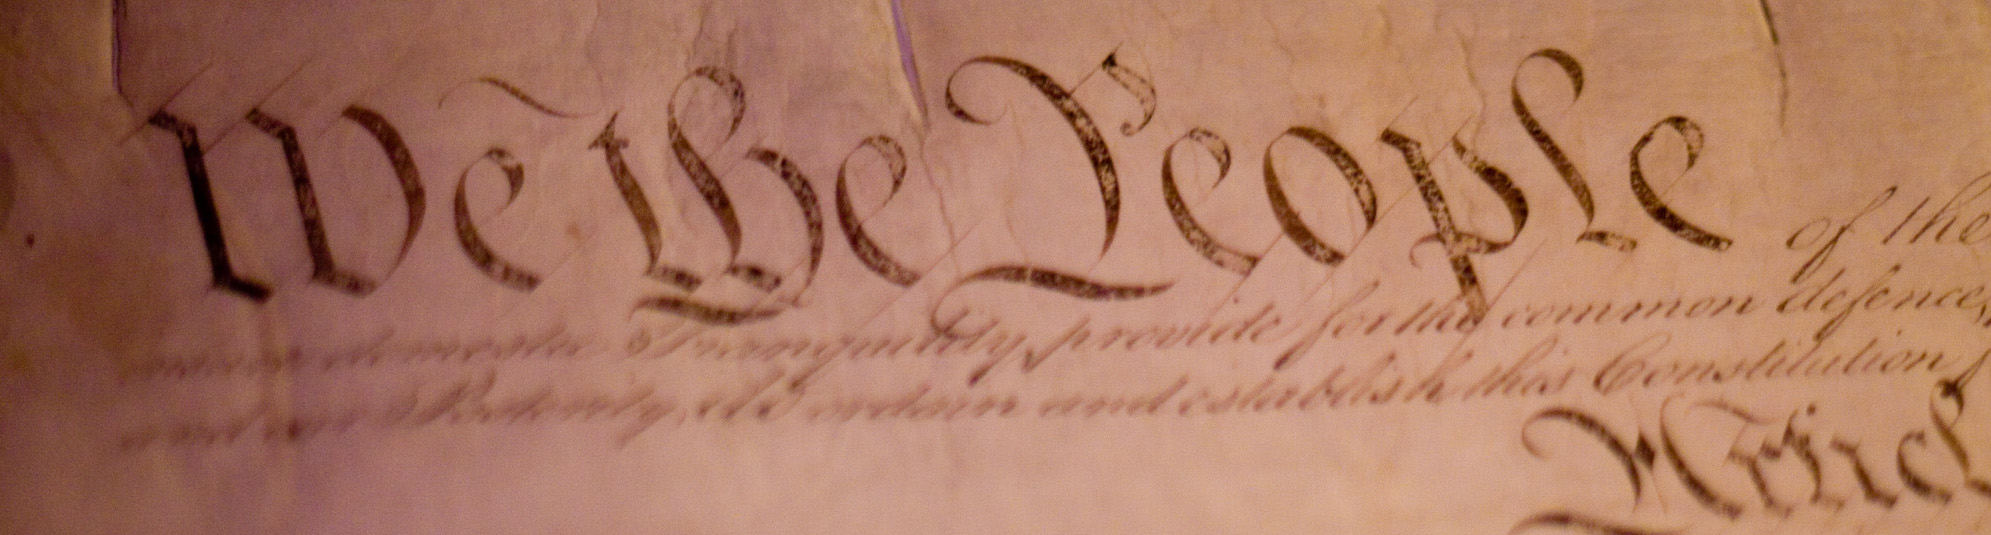 We the People of the
insure domestic Tranquility, provide for the common defence,
and our Posterity, do ordain and establish this Constitution
Article